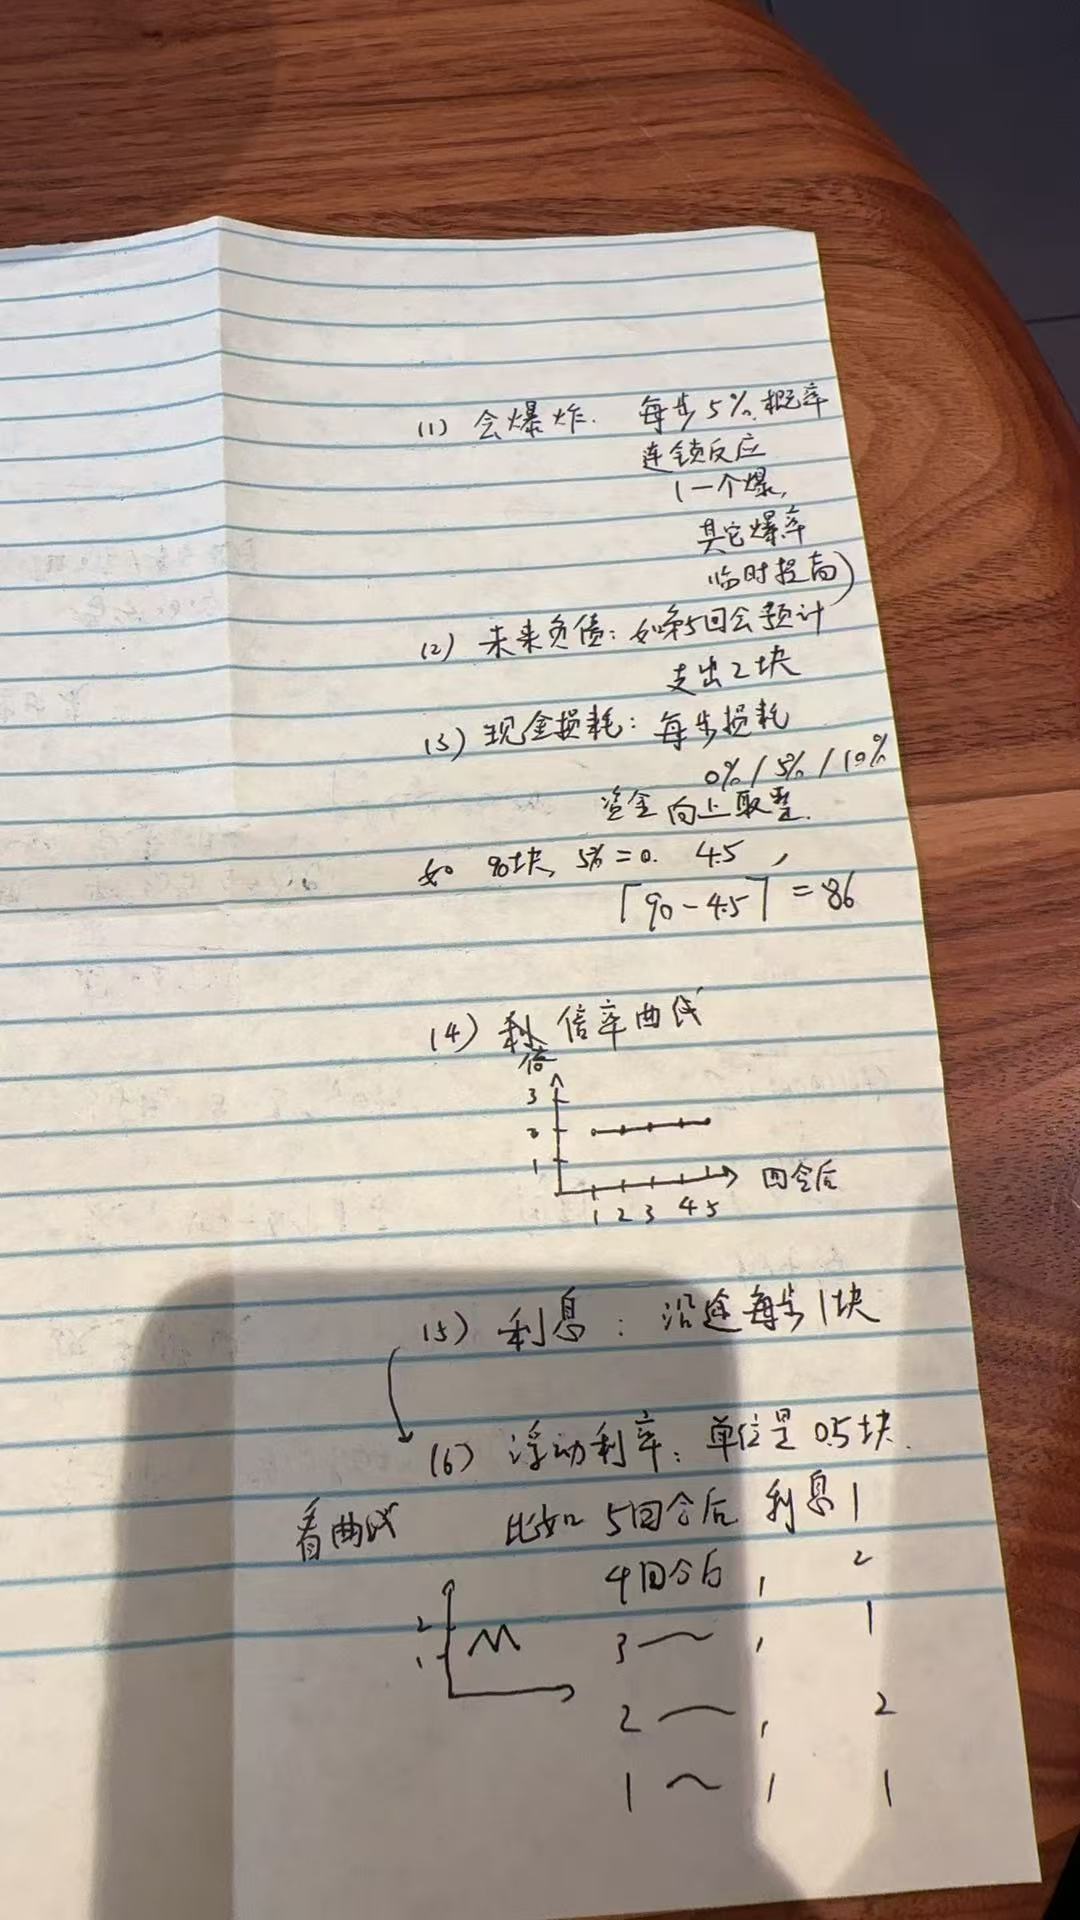 (1) 会爆炸. 每步5%概率
连锁反应
(一个爆,
其它爆率
临时提高)
(2) 未来负债: 如第5回合预计
支出2块
(3) 现金损耗: 每步损耗
0% / 5% / 10%
资金向上取整.
如 90块, 5% = 0. 4.5 ,
⌈90-4.5⌉ = 86
(4) 倍率曲线
倍
3
2
1
回合后
1 2 3 4 5
(5) 利息: 沿途每步1块
(6) 浮动利率: 单位是0.5块.
看曲线 比如 5回合后 利息 1
4回合后 , 2
3 〜 , 1
2 〜 , 2
1 〜 , 1
2
1